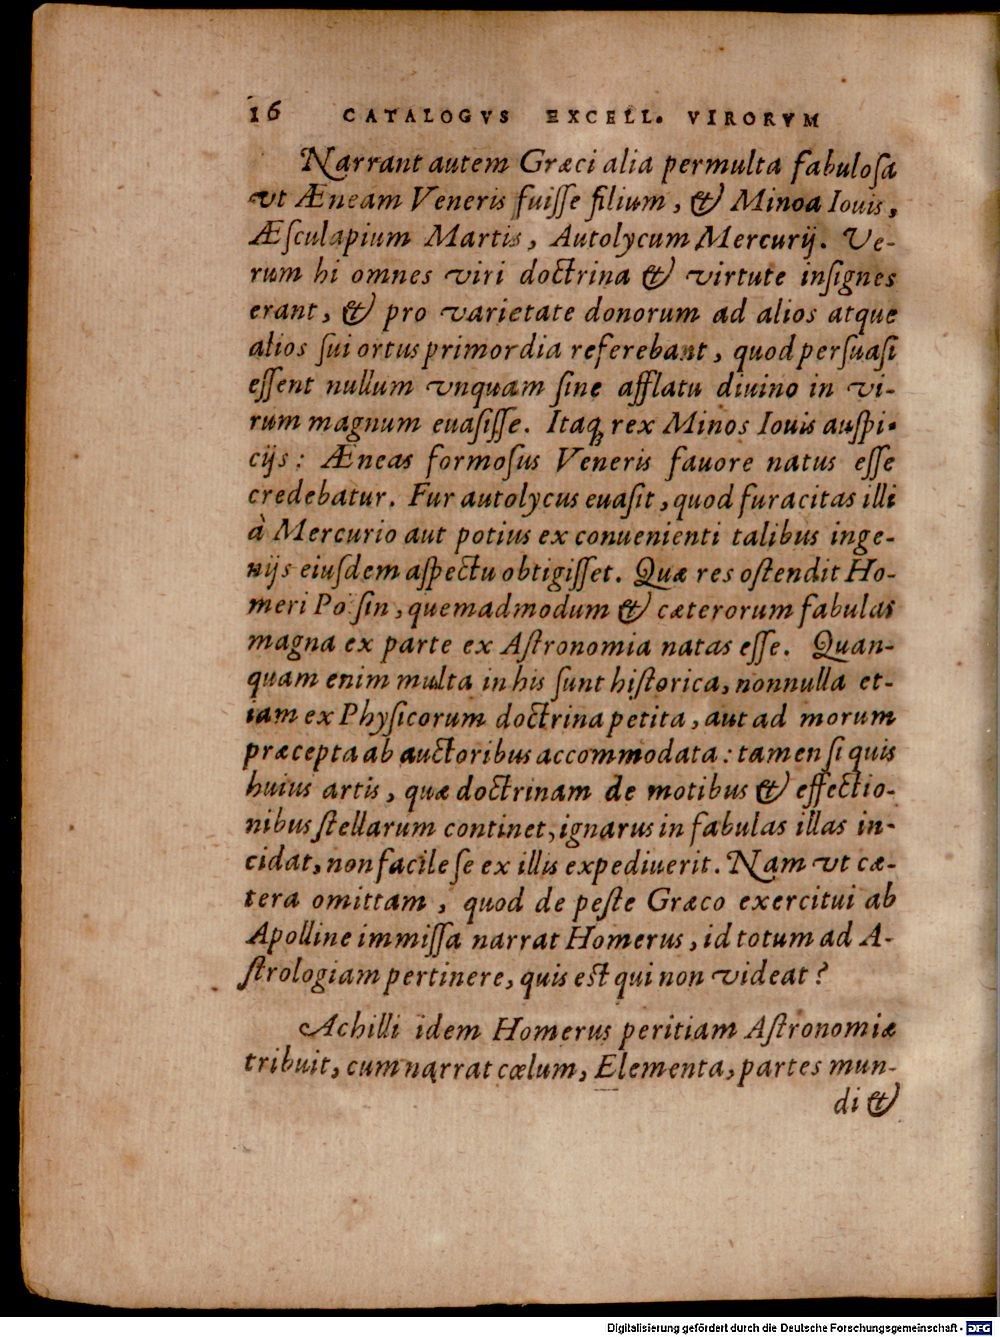 16 CATALOGVS EXCELL. VIRORVM
Narrant autem Græci alia permulta fabuloſa
vt Æneam Veneris fuiſſe filium, & Minoa Iouis,
Æſculapium Martis, Autolycum Mercurij. Ve-
rum hi omnes viri doctrina & virtute inſignes
erant, & pro varietate donorum ad alios atque
alios ſui ortus primordia referebant, quod perſuaſi
eſſent nullum vnquam ſine afflatu diuino in vi-
rum magnum euaſiſſe. Itaq; rex Minos Iouis auſpi-
cijs: Æneas formoſus Veneris fauore natus eſſe
credebatur. Fur autolycus euaſit, quod furacitas illi
à Mercurio aut potius ex conuenienti talibus inge-
nijs eiuſdem aſpectu obtigiſſet. Quæ res oſtendit Ho-
meri Poſin, quemadmodum & cæterorum fabulas
magna ex parte ex Aſtronomia natas eſſe. Quan-
quam enim multa in his ſunt hiſtorica, nonnulla et-
iam ex Phyſicorum doctrina petita, aut ad morum
præcepta ab auctoribus accommodata: tamen ſi quis
huius artis, quæ doctrinam de motibus & effectio-
nibus ſtellarum continet, ignarus in fabulas illas in-
cidat, non facile ſe ex illis expediuerit. Nam vt cæ-
tera omittam, quod de peſte Græco exercitui ab
Apolline immiſſa narrat Homerus, id totum ad A-
ſtrologiam pertinere, quis eſt qui non videat?
Achilli idem Homerus peritiam Aſtronomiæ
tribuit, cum narrat cœlum, Elementa, partes mun-
di &
Digitalisierung gefördert durch die Deutsche Forschungsgemeinschaft - DFG